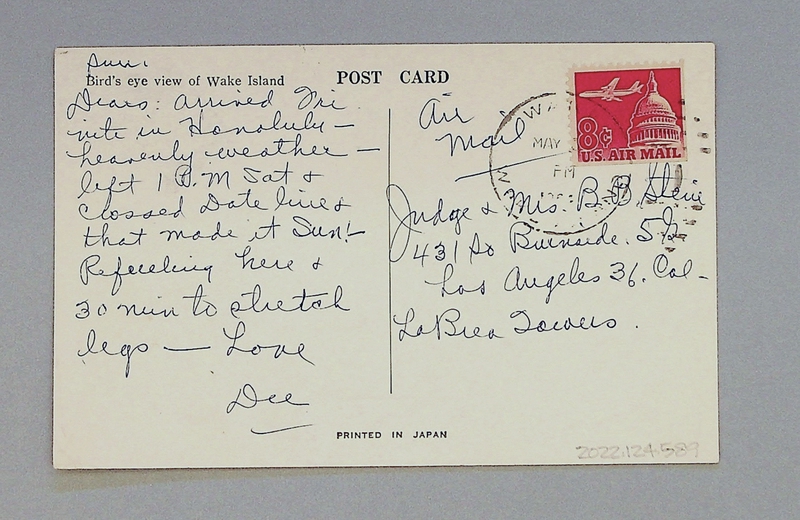 Sun.
Bird's eye view of Wake Island
POST CARD
Dears: arrived Fri
nite in Honolulu —
heavenly weather —
left 1 P.M Sat &
crossed Date line &
that made it Sun! —
Refueling here &
30 min to stretch
legs — Love
Dee
Air
Mail
WA
MAY
PM
8¢
U.S. AIR MAIL
Judge & Mrs. B. B. Stein
431 So Burnside.
Los Angeles 36. Cal-
La Brea Towers.
PRINTED IN JAPAN
2022.124.589